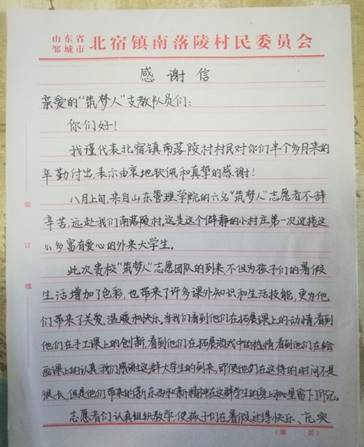 山东省
邹城市 北宿镇南落陵村民委员会
感谢信
亲爱的“筑梦人”支教队员们：
你们好！
我谨代表北宿镇南落陵村村民对你们半个多月来的
辛勤付出，表示由衷地钦佩和真挚的感谢！
八月上旬，来自山东管理学院的六名“筑梦人”志愿者不辞
辛苦，远赴我们南落陵村，这是这个僻静的小村庄第一次迎接这
么多富有爱心的外来大学生。
此次贵校“筑梦人”志愿团队的到来不但为孩子们的暑假
生活增加了色彩，也带来了许多课外知识和生活技能，更为他
们带来了关爱、温暖和快乐，当我们看到他们在拓展课上的动情，看到
他们在手工课上的创新，看到他们在拓展游戏中的热情，看到他们在绘
画课上的认真，我们感谢这群大学生的到来，即使他们在这待的时间不是
很长，但是他们带来的新东西和新精神在这群学生的身上和心里留下印记。
志愿者们认真组织教学，使孩子们在暑假过得快乐、充实
装
订
线
第 页